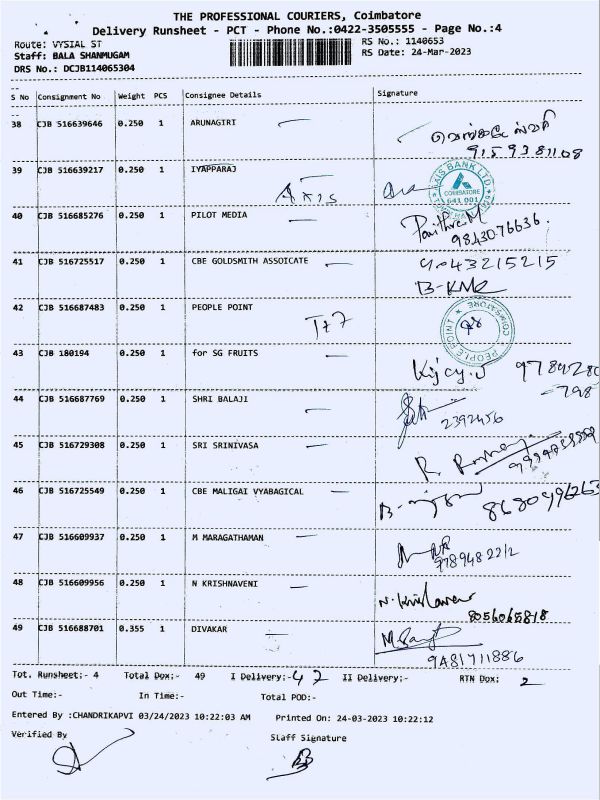 THE PROFESSIONAL COURIERS, Coimbatore
Delivery Runsheet - PCT - Phone No.:0422-3505555 - Page No.:4
Route: VYSIAL ST
RS No.: 1140653
Staff: BALA SHANMUGAM
RS Date: 24-Mar-2023
DRS No.: DCJB114065304
S No Consignment No Weight PCS Consignee Details Signature
38 CJB 516639646 0.250 1 ARUNAGIRI
9159381108
39 CJB 516639217 0.250 1 IYAPPARAJ
AXIS
AXIS BANK LTD.
COIMBATORE
641 001
40 CJB 516685276 0.250 1 PILOT MEDIA
Pavithra M
9843076636.
41 CJB 516725517 0.250 1 CBE GOLDSMITH ASSOICATE 9043215215
42 CJB 516687483 0.250 1 PEOPLE POINT
PEOPLE POINT COIMBATORE
43 CJB 180194 0.250 1 for SG FRUITS
44 CJB 516687769 0.250 1 SHRI BALAJI
2392456
45 CJB 516729308 0.250 1 SRI SRINIVASA
46 CJB 516725549 0.250 1 CBE MALIGAI VYABAGICAL
47 CJB 516609937 0.250 1 M MARAGATHAMAN
48 CJB 516609956 0.250 1 N KRISHNAVENI
8056065818
49 CJB 516688701 0.355 1 DIVAKAR
9481711886
Tot. Runsheet:- 4 Total Dox:- 49 I Delivery:- 47 II Delivery:- RTN Dox: 2
Out Time:- In Time:- Total POD:-
Entered By :CHANDRIKAPVI 03/24/2023 10:22:03 AM Printed On: 24-03-2023 10:22:12
Verified By Staff Signature